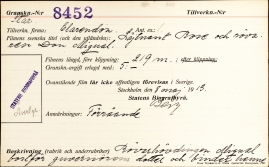 Granskn.-N:r 8452 Tillverkn.-N:r
Tillverkn. firma: Clarendon
Filmens svenska titel (och den utländska): Löjtnant Rose och röva-
ren Don Miguel.
Filmens längd, före klippning: 219 m.; efter klippning:
Granskn.-avgift erlagd med: 5
Ovanstående film får icke offentligen förevisas i Sverige.
Stockholm den 1913.
Statens Biografbyrå.
Berg
Anmärkningar: Förråande
Beskrivning (rubrik och underrubriker) Rövarhövdingen Miguel
bortför guvernörens dotter och binder henne